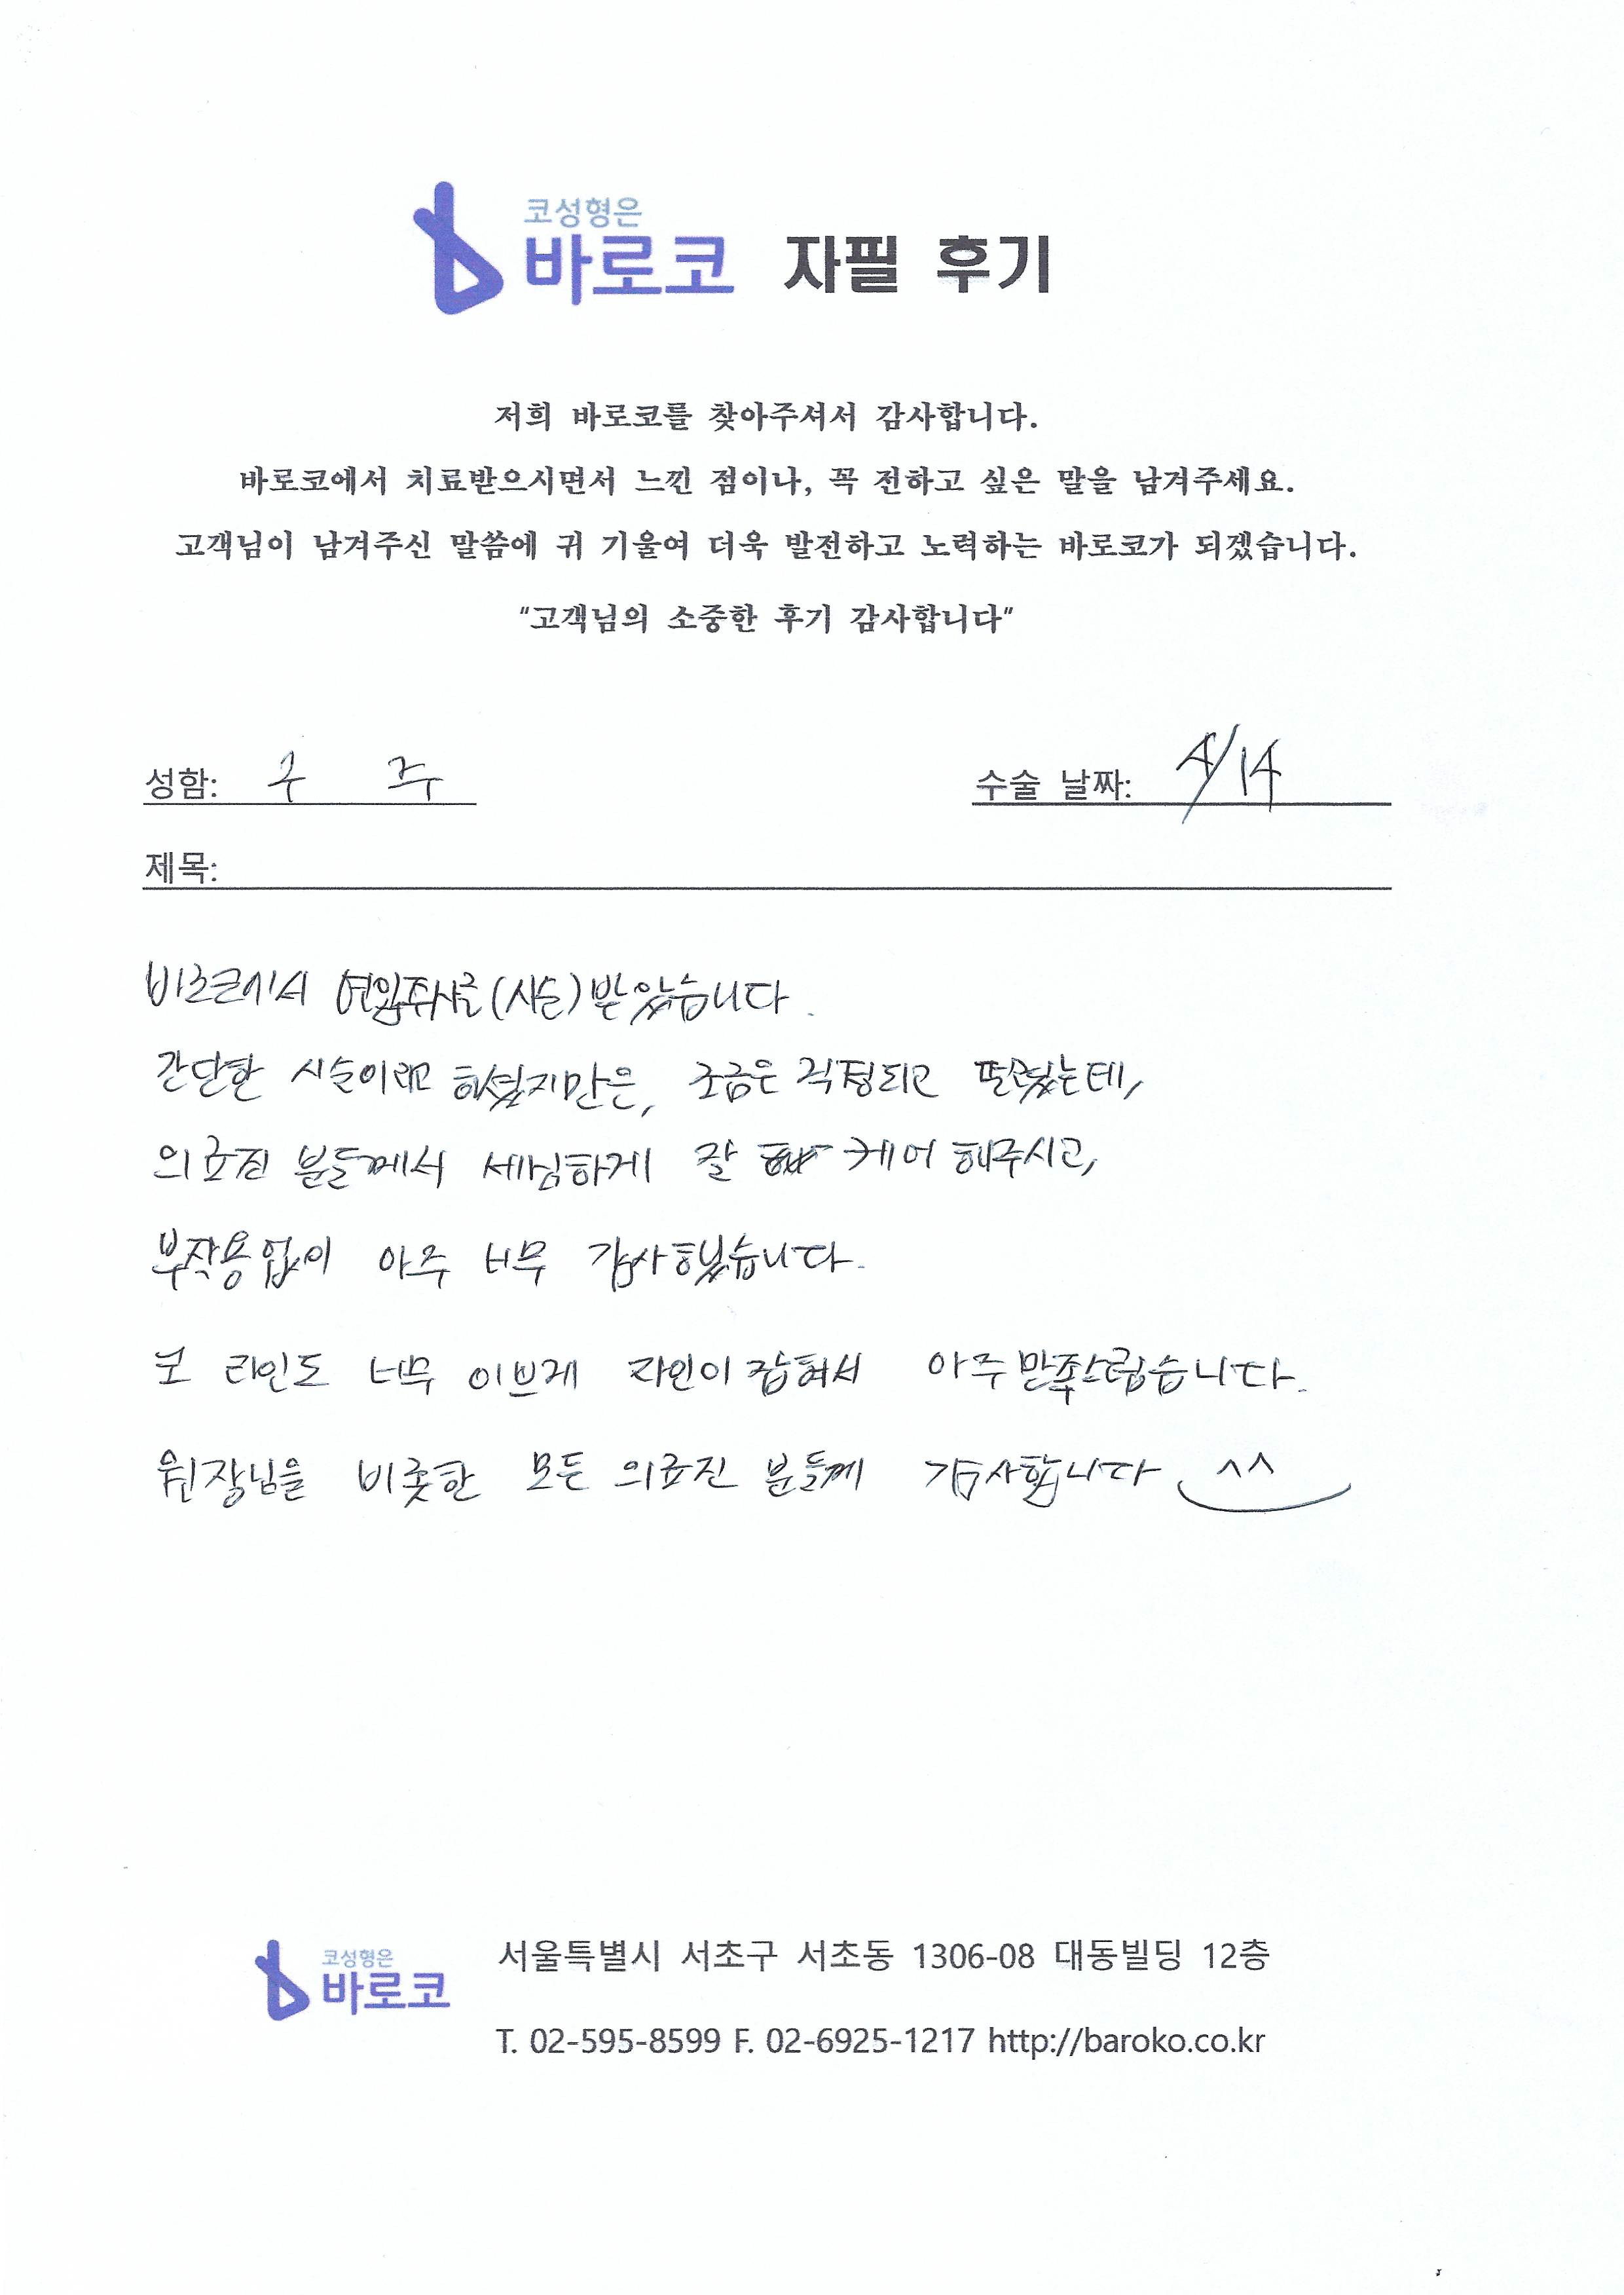 코성형은
바로코 자필 후기
저희 바로코를 찾아주셔서 감사합니다.
바로코에서 치료받으시면서 느낀 점이나, 꼭 전하고 싶은 말을 남겨주세요.
고객님이 남겨주신 말씀에 귀 기울여 더욱 발전하고 노력하는 바로코가 되겠습니다.
"고객님의 소중한 후기 감사합니다"
성함: 구 주 수술 날짜: 4/14
제목:
바로코에서 (시술) 받았습니다.
간단한 시술이라고 하셨지만은, 조금은 걱정되고 떨렸는데,
의료진 분들께서 세심하게 잘 케어 해주시고,
부작용 없이 아주 너무 감사했습니다.
코 라인도 너무 이쁘게 라인이 잡혀서 아주 만족스럽습니다.
원장님을 비롯한 모든 의료진 분들께 감사합니다 ^^
코성형은
바로코
서울특별시 서초구 서초동 1306-08 대동빌딩 12층
T. 02-595-8599 F. 02-6925-1217 http://baroko.co.kr